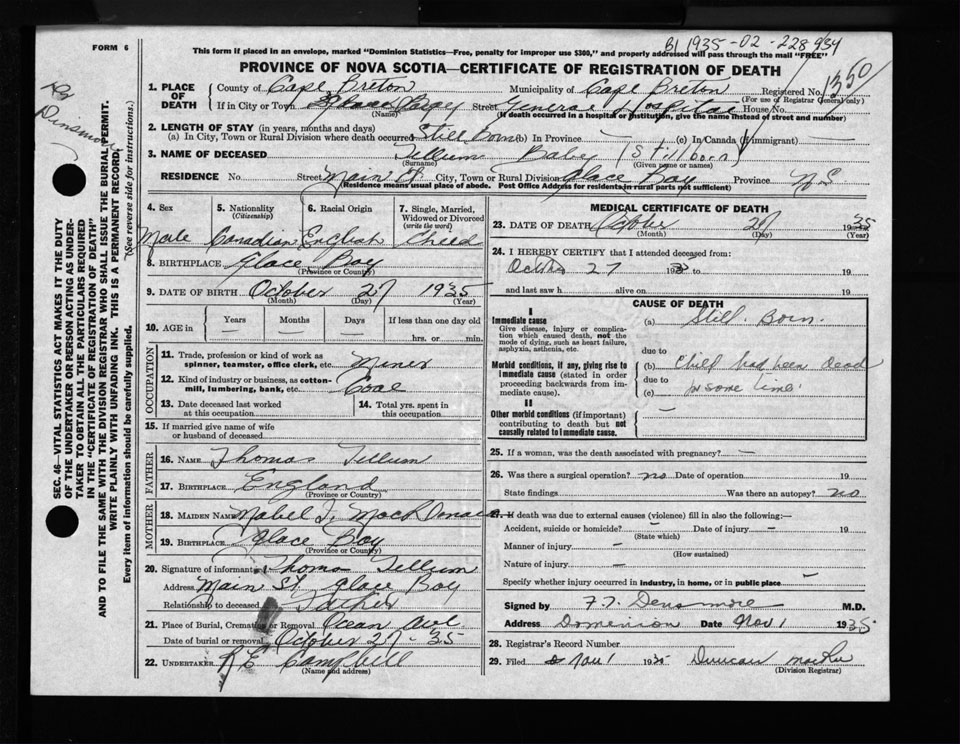 FORM 6
This form if placed in an envelope, marked "Dominion Statistics—Free, penalty for improper use $300," and properly addressed will pass through the mail "FREE"
1935-02-228934
PROVINCE OF NOVA SCOTIA—CERTIFICATE OF REGISTRATION OF DEATH
1350
1. PLACE OF DEATH
County of Cape Breton Municipality of Cape Breton Registered No.
(For use of Registrar General only)
If in City or Town Glace Bay Street General Hospital House No.
(Name) (If death occurred in a hospital or institution, give the name instead of street and number)
2. LENGTH OF STAY (in years, months and days)
(a) In City, Town or Rural Division where death occurred Still Born (b) In Province — (c) In Canada (if immigrant)
3. NAME OF DECEASED Tellum Baby (Stillborn)
(Surname) (Given name or names)
RESIDENCE No. Street Main St. City, Town or Rural Division Glace Bay Province N S
(Residence means usual place of abode. Post Office Address for residents in rural parts not sufficient)
4. Sex
Male
5. Nationality
(Citizenship)
Canadian
6. Racial Origin
English
7. Single, Married, Widowed or Divorced
(write the word)
8. BIRTHPLACE Glace Bay
(Province or County)
9. DATE OF BIRTH October 27 1935
(Month) (Day) (Year)
10. AGE in Years Months Days If less than one day old
hrs. or min.
OCCUPATION
11. Trade, profession or kind of work as
spinner, teamster, office clerk, etc. Miner
12. Kind of industry or business, as cotton-
mill, lumbering, bank, etc. Coal
13. Date deceased last worked
at this occupation
14. Total yrs. spent in
this occupation
15. If married give name of wife
or husband of deceased
FATHER
16. NAME Thomas Tellum
17. BIRTHPLACE England
(Province or Country)
MOTHER
18. MAIDEN NAME Mabel J. MacDonald
19. BIRTHPLACE Glace Bay
(Province or Country)
20. Signature of informant Thomas Tellum
Address Main St. Glace Bay
Relationship to deceased Father
21. Place of Burial, Cremation or Removal Ocean Ave
Date of burial or removal October 27 - 35
22. UNDERTAKER R E Campbell
(Name and address)
MEDICAL CERTIFICATE OF DEATH
23. DATE OF DEATH October 27 1935
(Month) (Day) (Year)
24. I HEREBY CERTIFY that I attended deceased from:
27 193 to 19
and last saw h alive on 19
CAUSE OF DEATH
I
Immediate cause
Give disease, injury or complica-
tion which caused death, not the
mode of dying, such as heart failure,
asphyxia, asthenia, etc.
(a) Still Born.
due to
Morbid conditions, if any, giving rise to
immediate cause (stated in order
proceeding backwards from im-
mediate cause).
(b) had been dead
due to
(c) for some time.
II
Other morbid conditions (if important)
contributing to death but not
causally related to immediate cause.
25. If a woman, was the death associated with pregnancy? —
26. Was there a surgical operation? no Date of operation 19
State findings Was there an autopsy? no
27. If death was due to external causes (violence) fill in also the following:
Accident, suicide or homicide? — Date of injury — 19
(State which)
Manner of injury —
(How sustained)
Nature of injury —
Specify whether injury occurred in industry, in home, or in public place —
Signed by F. J. Densmore M.D.
Address Dominion Date Nov 1 1935
28. Registrar's Record Number
29. Filed Nov 1 1935 Duncan
(Division Registrar)
SEC. 46—VITAL STATISTICS ACT MAKES IT THE DUTY
OF THE UNDERTAKER OR PERSON ACTING AS UNDER-
TAKER TO OBTAIN ALL THE PARTICULARS REQUIRED
IN THE "CERTIFICATE OF REGISTRATION OF DEATH"
AND TO FILE THE SAME WITH THE DIVISION REGISTRAR WHO SHALL ISSUE THE BURIAL PERMIT.
WRITE PLAINLY WITH UNFADING INK. THIS IS A PERMANENT RECORD.
Every item of information should be carefully supplied. (See reverse side for instructions.)